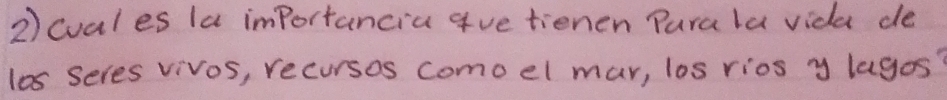 2) cual es la importancia que tienen para la vida de
los seres vivos, recursos como el mar, los rios y lagos?